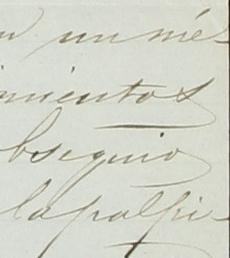 un mé-
imientos
bsequio
la palpi-